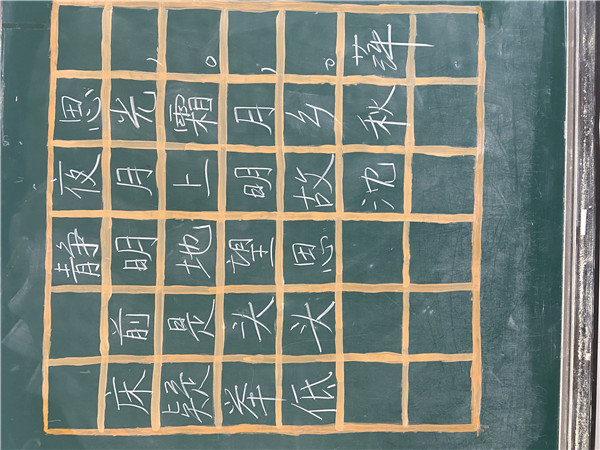 静夜思
床前明月光，
疑是地上霜。
举头望明月，
低头思故乡。
沈秋萍